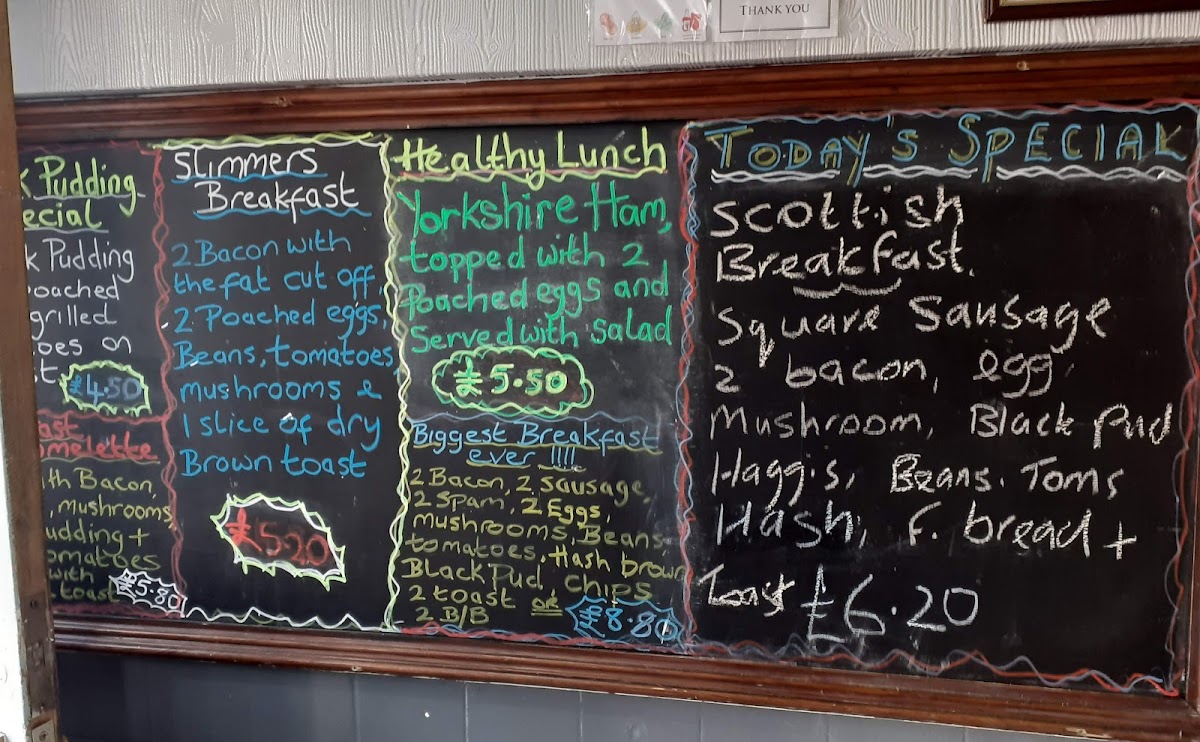 THANK YOU
k Pudding
ecial
k Pudding
oached
grilled
oes on
t.
£4.50
ast
melette
ith Bacon,
, mushrooms,
udding +
omatoes
with
toast
£5.80
Slimmers
Breakfast
2 Bacon with
the fat cut off,
2 Poached eggs,
Beans, tomatoes,
mushrooms &
1 slice of dry
Brown toast
£5.20
Healthy Lunch
Yorkshire Ham,
topped with 2
Poached eggs and
Served with salad
£5.50
Biggest Breakfast
ever !!!!
2 Bacon, 2 sausage,
2 Spam, 2 Eggs,
mushrooms, Beans,
tomatoes, Hash brown
Black Pud, Chips
2 toast or
2 B/B
£8.80
TODAY'S SPECIAL
Scottish
Breakfast.
Square Sausage
2 bacon, egg,
Mushroom, Black Pud
Haggis, Beans. Toms
Hash, f. bread +
Toast £6.20